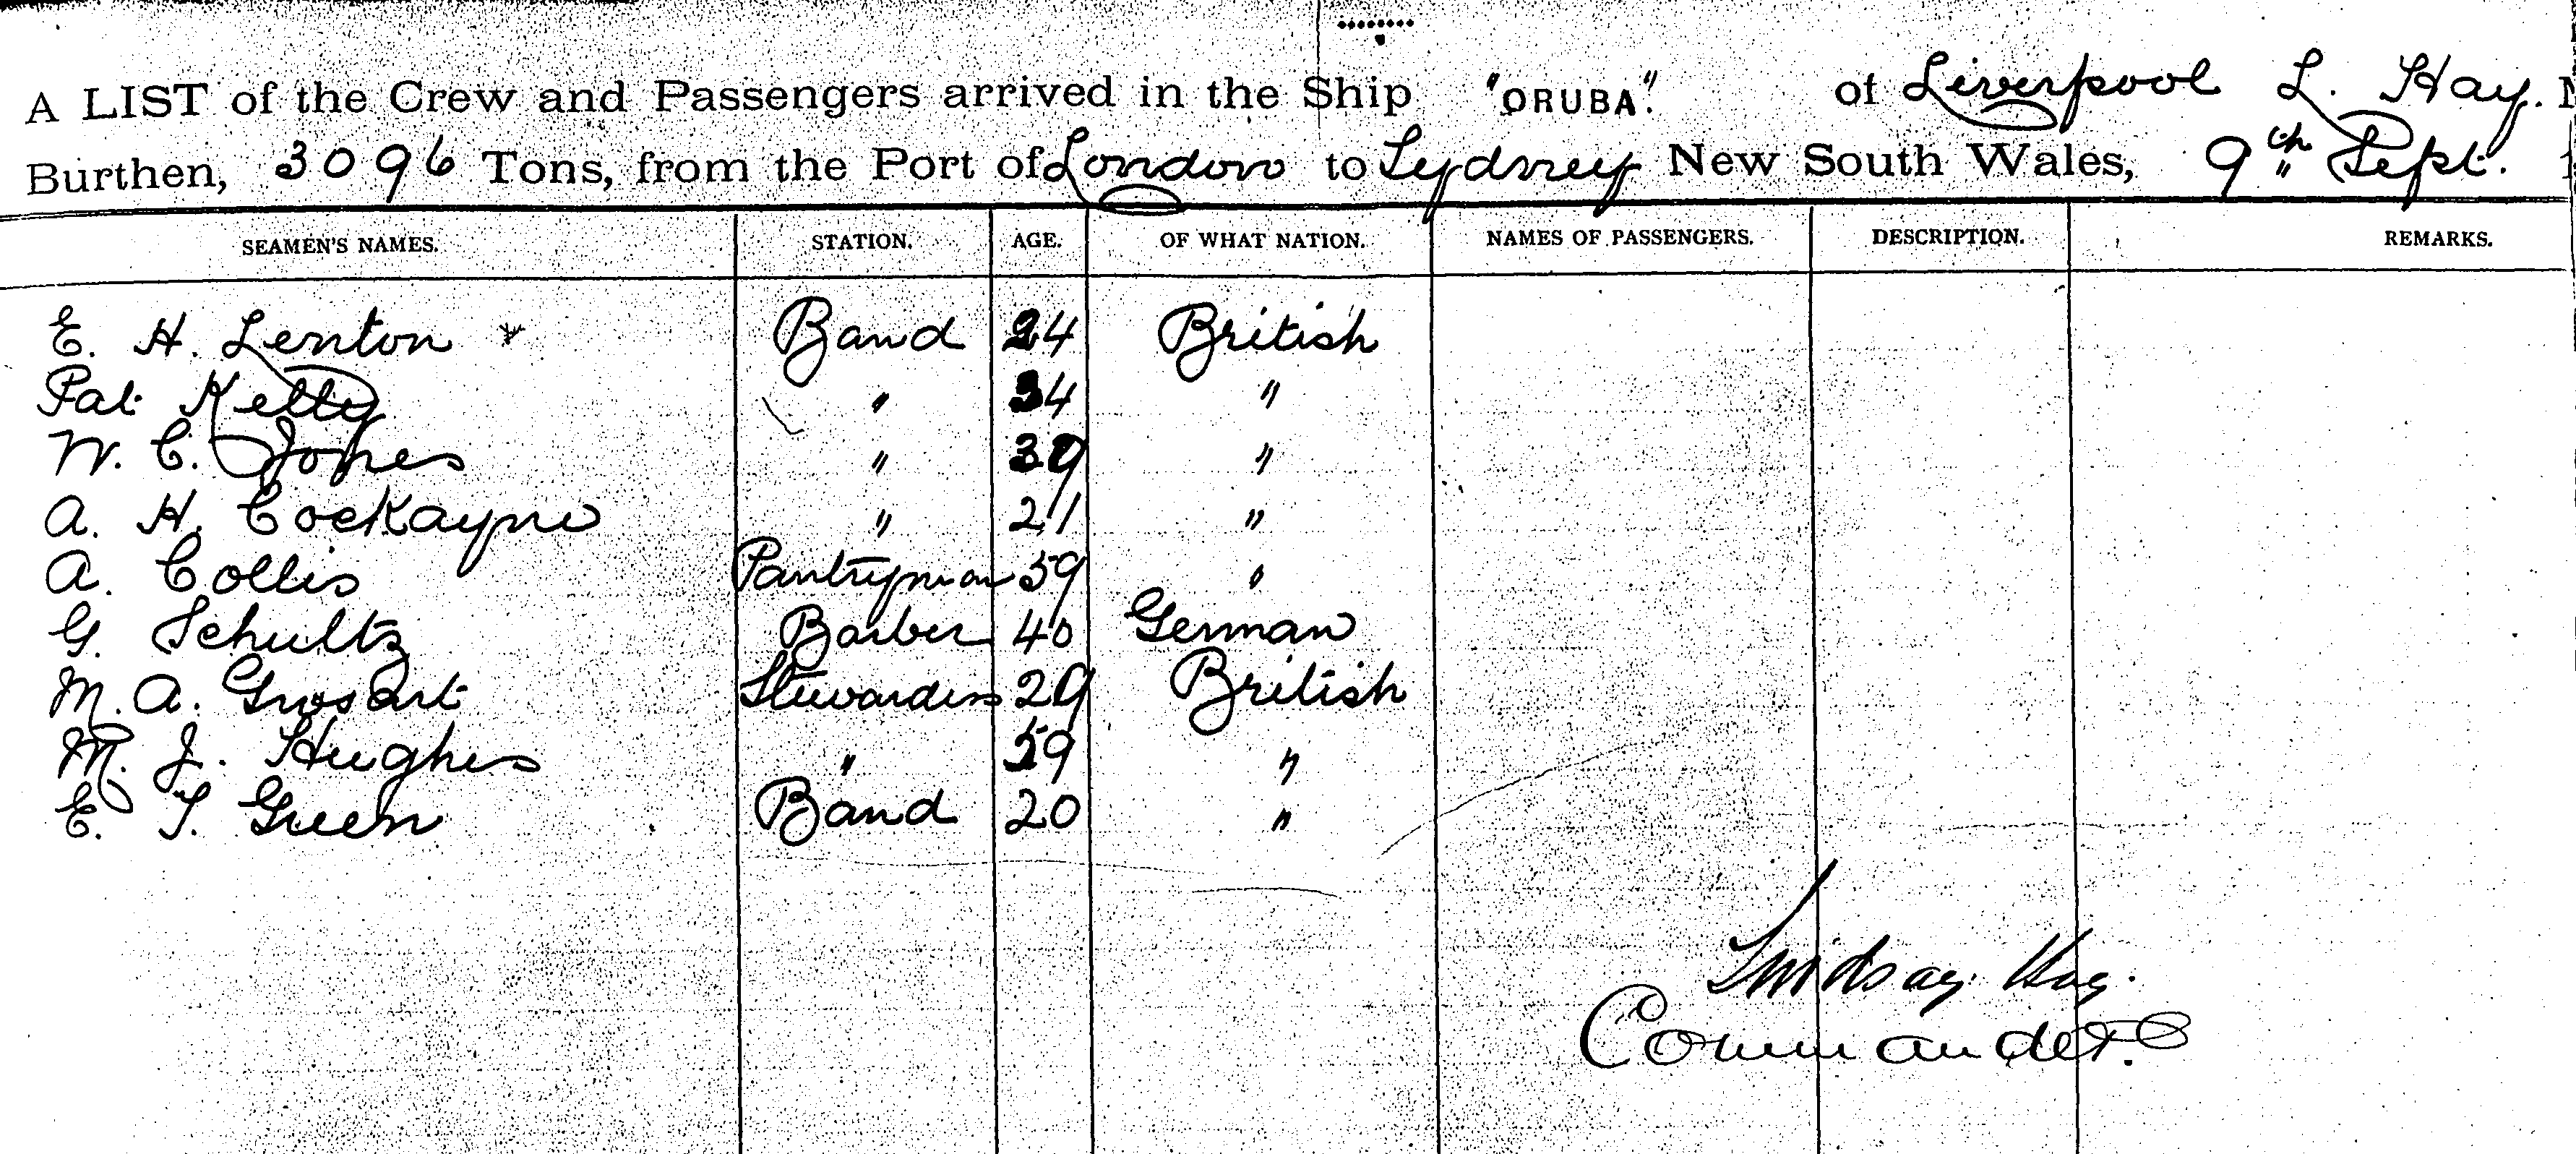 A LIST of the Crew and Passengers arrived in the Ship "ORUBA". of Liverpool L. Hay.
Burthen, 3096 Tons, from the Port of London to Sydney New South Wales, 9th Sept.
SEAMEN'S NAMES. STATION. AGE. OF WHAT NATION. NAMES OF PASSENGERS. DESCRIPTION. REMARKS.
E. H. Lenton Band 24 British
Pat Kelly " 34 "
W. C. Jones " 39 "
A. H. Cockayne " 21 "
A. Collis Pantryman 59 "
G. Schultz Barber 40 German
M. A. Grosart Stewardess 29 British
M. J. Hughes " 59 "
E. T. Green Band 20 "
Lindsay Hay.
Commander.